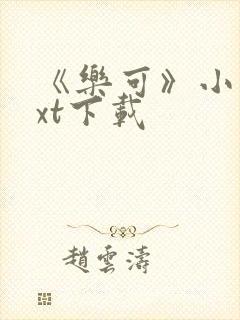 《樂可》小
xt下載
趙雲濤